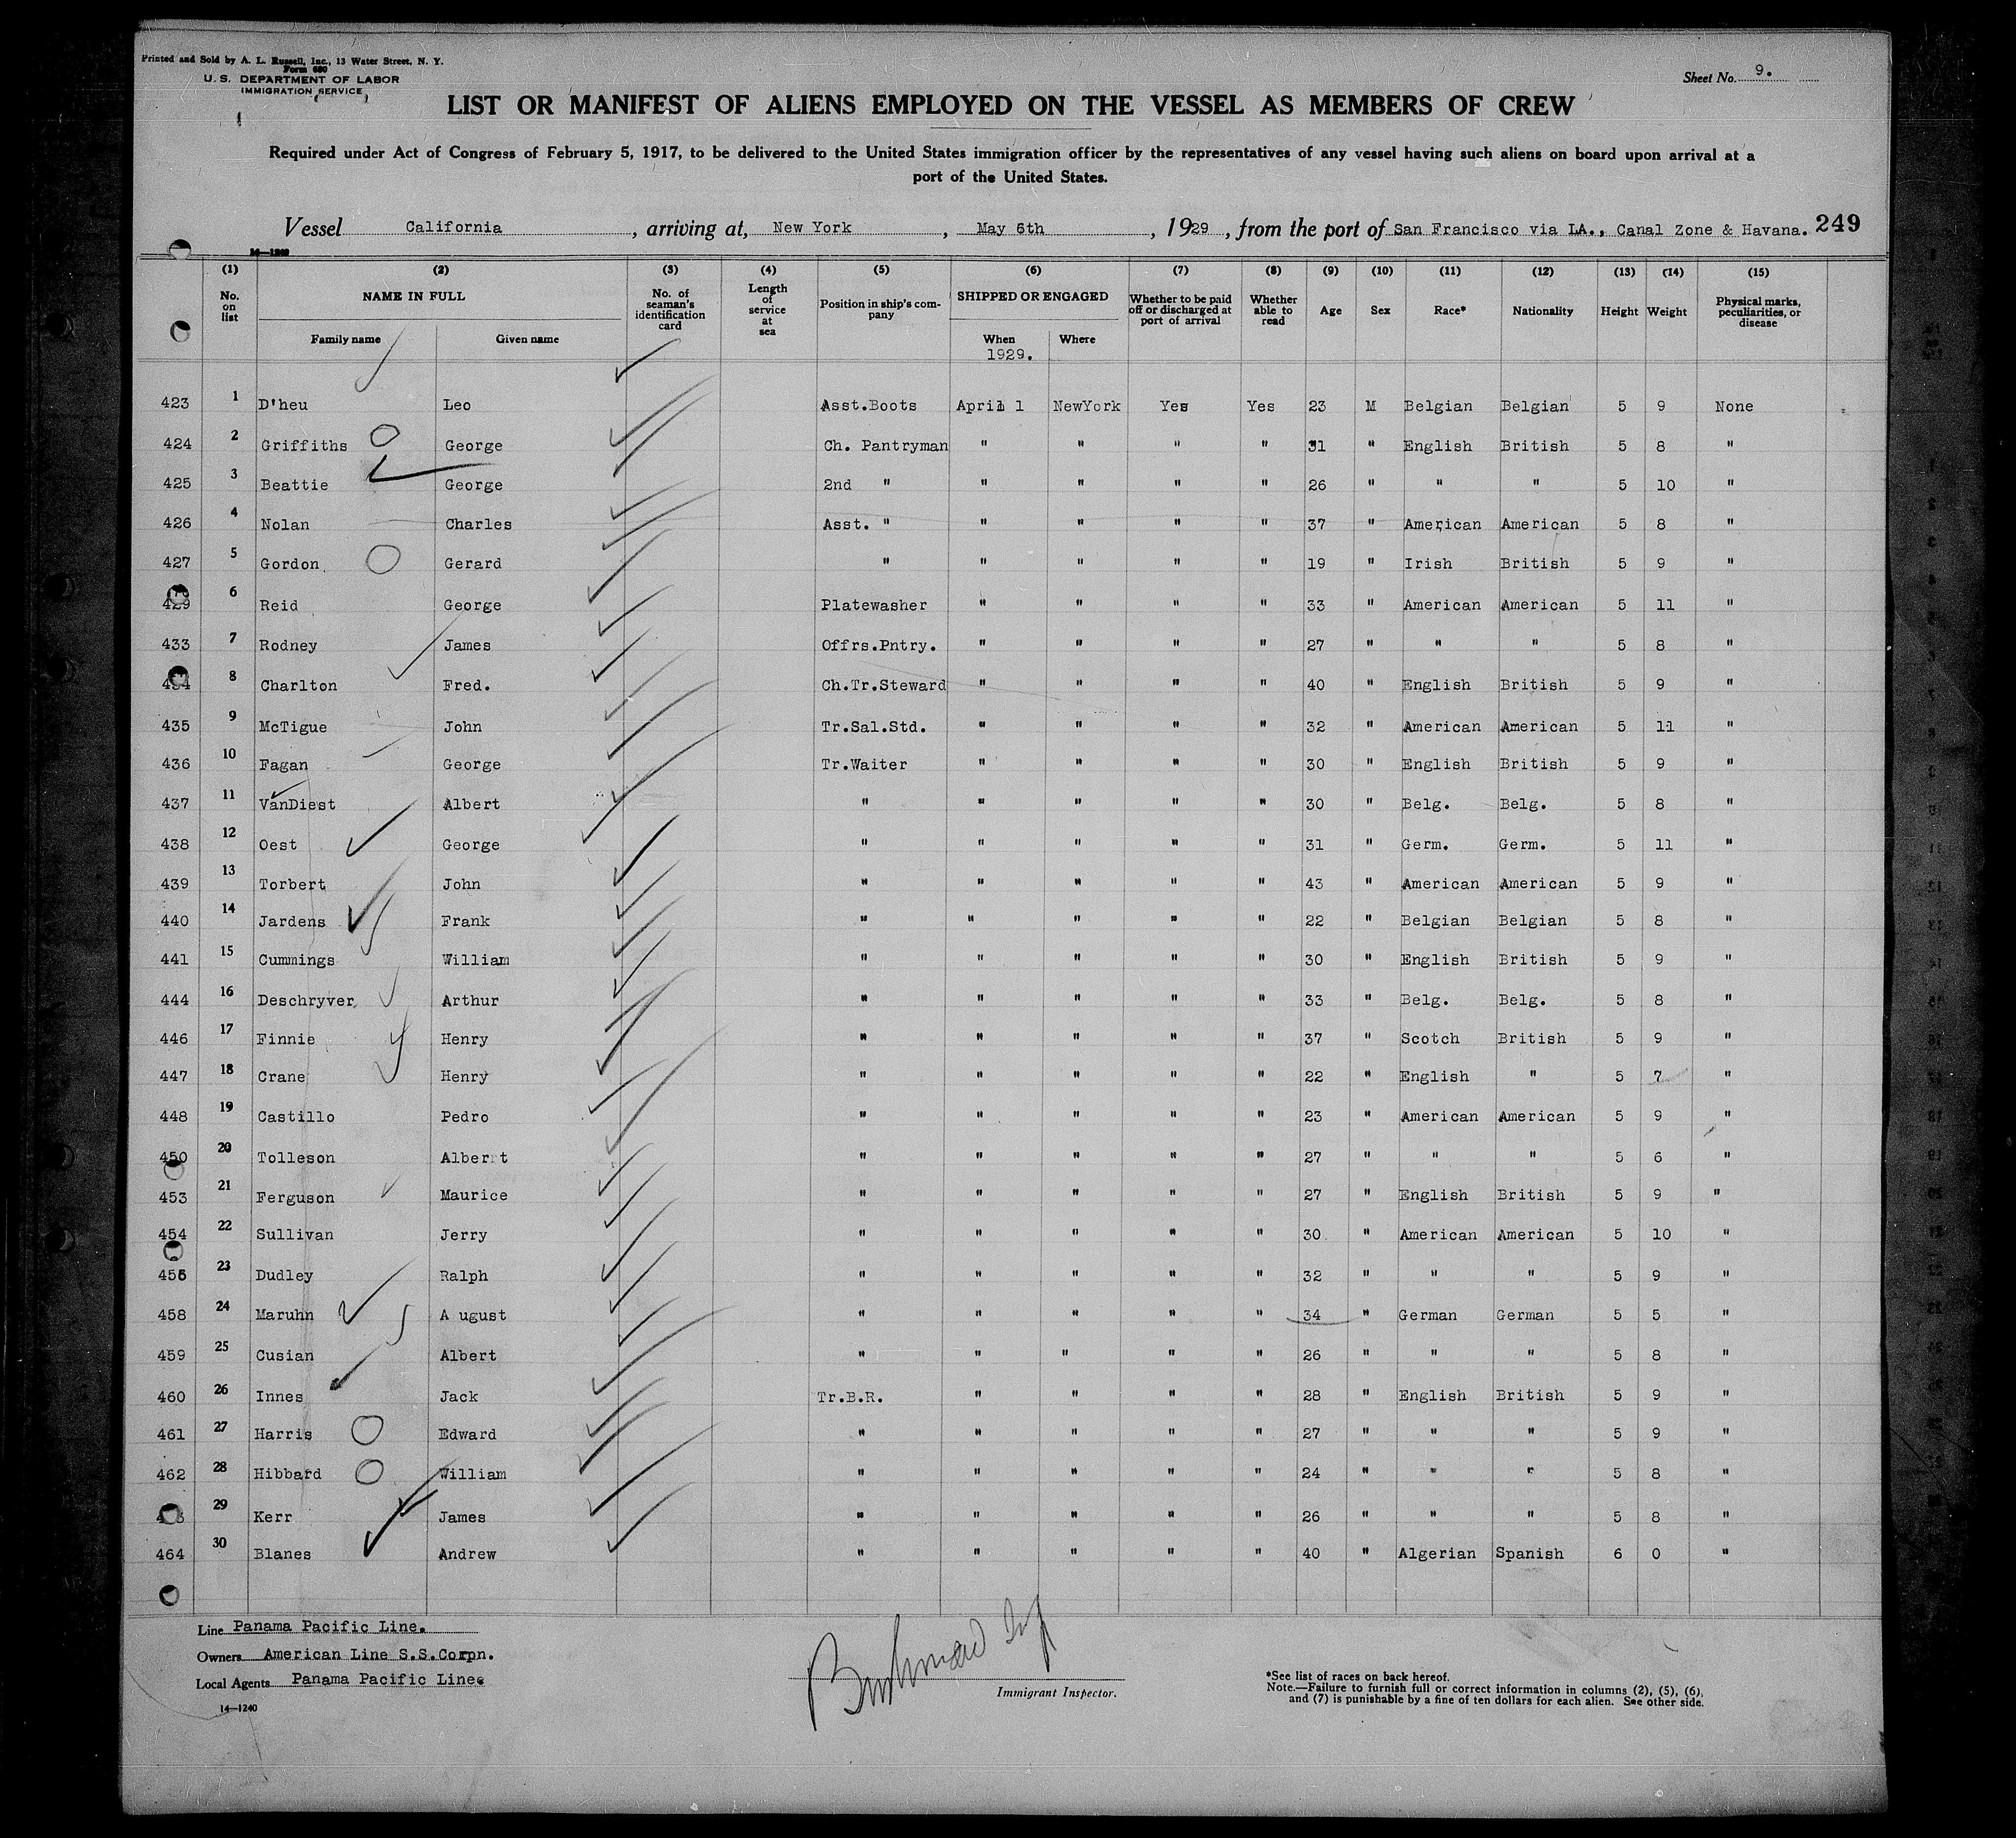 Printed and Sold by A. L. Russell, Inc., 13 Water Street, N. Y.
Form 680
U. S. DEPARTMENT OF LABOR
IMMIGRATION SERVICE
Sheet No. 9.
LIST OR MANIFEST OF ALIENS EMPLOYED ON THE VESSEL AS MEMBERS OF CREW
Required under Act of Congress of February 5, 1917, to be delivered to the United States immigration officer by the representatives of any vessel having such aliens on board upon arrival at a
port of the United States.
Vessel California, arriving at, New York, May 6th, 1929, from the port of San Francisco via LA., Canal Zone & Havana. 249
14—1240
(1) (2) (3) (4) (5) (6) (7) (8) (9) (10) (11) (12) (13) (14) (15)
No. on list NAME IN FULL No. of seaman's identification card Length of service at sea Position in ship's company SHIPPED OR ENGAGED Whether to be paid off or discharged at port of arrival Whether able to read Age Sex Race* Nationality Height Weight Physical marks, peculiarities, or disease
Family name Given name When Where
1929.
423 1 D'heu Leo Asst.Boots April 1 NewYork Yes Yes 23 M Belgian Belgian 5 9 None
424 2 Griffiths George Ch. Pantryman " " " " 31 " English British 5 8 "
425 3 Beattie George 2nd " " " " " 26 " " " 5 10 "
426 4 Nolan Charles Asst. " " " " " 37 " American American 5 8 "
427 5 Gordon Gerard " " " " " 19 " Irish British 5 9 "
429 6 Reid George Platewasher " " " " 33 " American American 5 11 "
433 7 Rodney James Offrs.Pntry. " " " " 27 " " " 5 8 "
434 8 Charlton Fred. Ch.Tr.Steward " " " " 40 " English British 5 9 "
435 9 McTigue John Tr.Sal.Std. " " " " 32 " American American 5 11 "
436 10 Fagan George Tr.Waiter " " " " 30 " English British 5 9 "
437 11 VanDiest Albert " " " " " 30 " Belg. Belg. 5 8 "
438 12 Oest George " " " " " 31 " Germ. Germ. 5 11 "
439 13 Torbert John " " " " " 43 " American American 5 9 "
440 14 Jardens Frank " " " " " 22 " Belgian Belgian 5 8 "
441 15 Cummings William " " " " " 30 " English British 5 9 "
444 16 Deschryver Arthur " " " " " 33 " Belg. Belg. 5 8 "
446 17 Finnie Henry " " " " " 37 " Scotch British 5 9 "
447 18 Crane Henry " " " " " 22 " English " 5 7 "
448 19 Castillo Pedro " " " " " 23 " American American 5 9 "
450 20 Tolleson Albert " " " " " 27 " " " 5 6 "
453 21 Ferguson Maurice " " " " " 27 " English British 5 9 "
454 22 Sullivan Jerry " " " " " 30 " American American 5 10 "
456 23 Dudley Ralph " " " " " 32 " " " 5 9 "
458 24 Maruhn A ugust " " " " " 34 " German German 5 5 "
459 25 Cusian Albert " " " " " 26 " " " 5 8 "
460 26 Innes Jack Tr.B.R. " " " " 28 " English British 5 9 "
461 27 Harris Edward " " " " " 27 " " " 5 9 "
462 28 Hibbard William " " " " " 24 " " " 5 8 "
29 Kerr James " " " " " 26 " " " 5 8 "
464 30 Blanes Andrew " " " " " 40 " Algerian Spanish 6 0 "
Line Panama Pacific Line.
Owners American Line S.S.Corpn.
Local Agents Panama Pacific Line.
14—1240
Immigrant Inspector.
*See list of races on back hereof.
Note.—Failure to furnish full or correct information in columns (2), (5), (6),
and (7) is punishable by a fine of ten dollars for each alien. See other side.